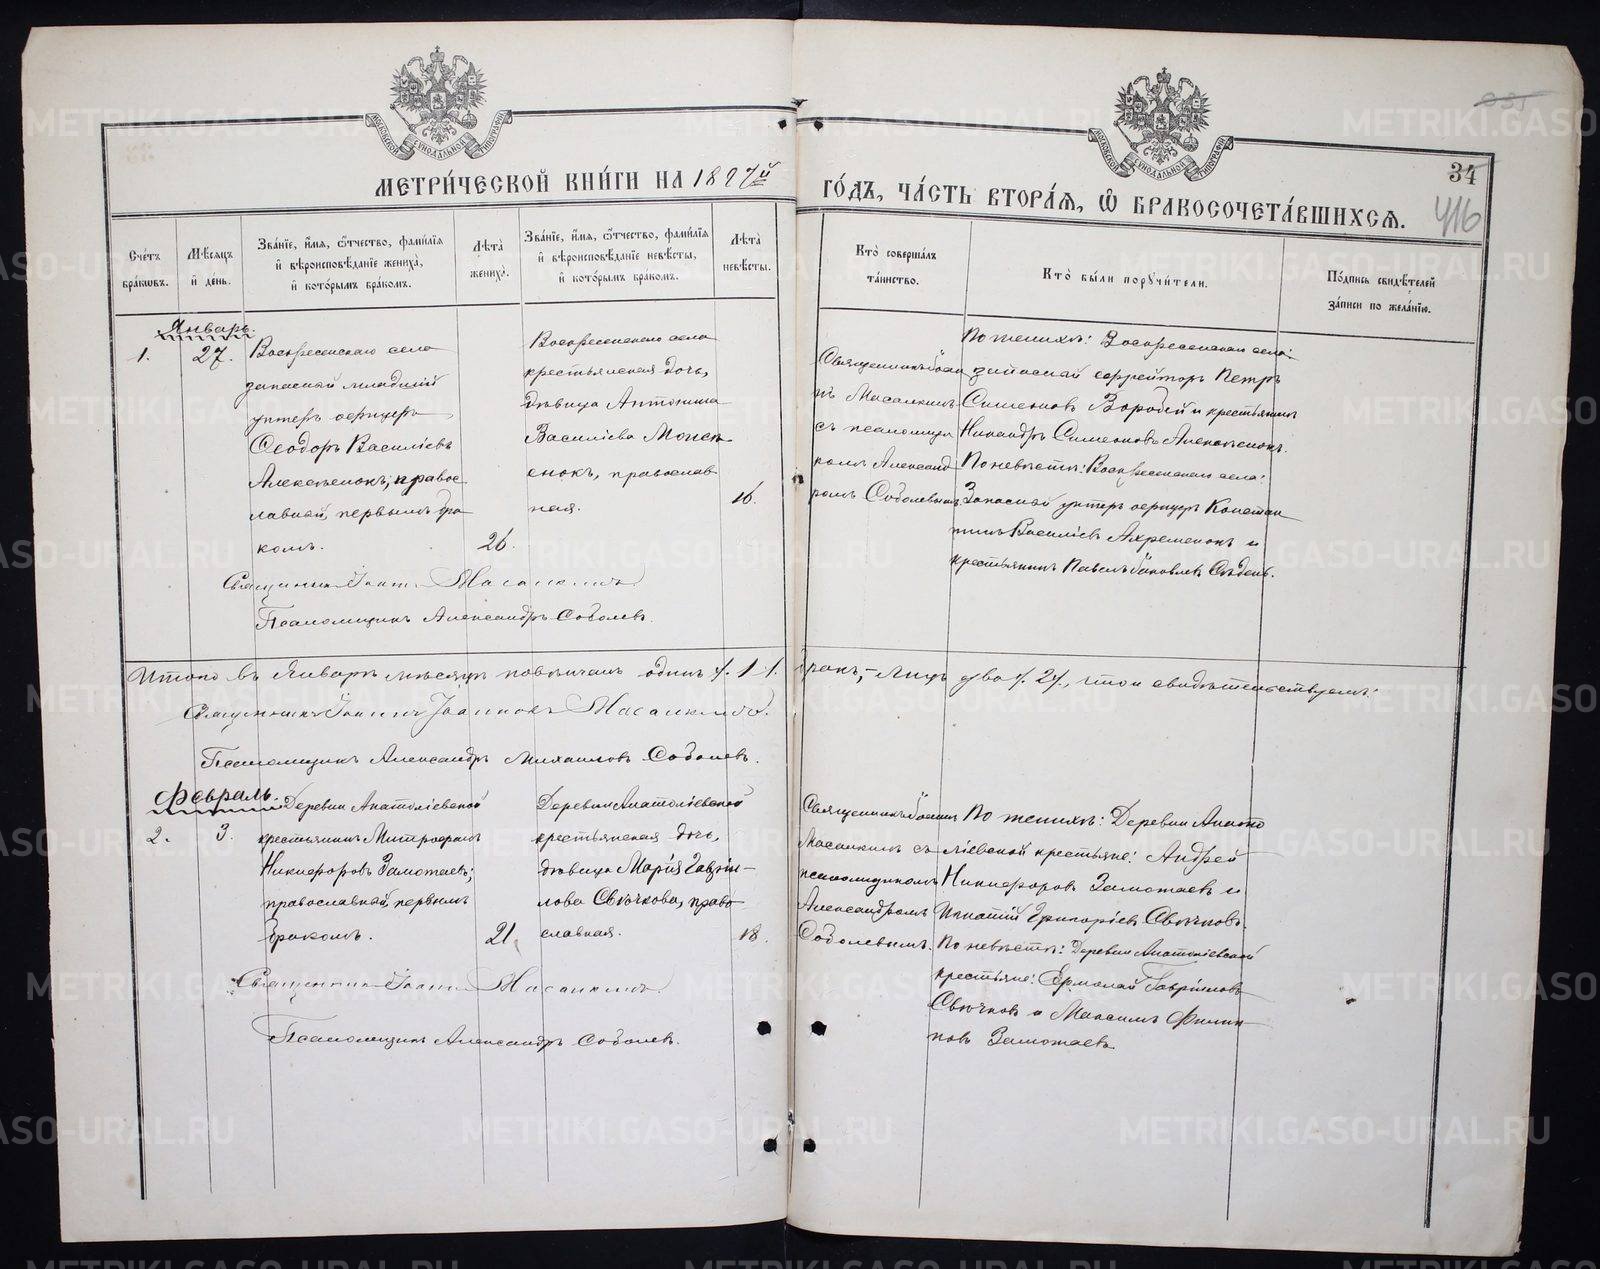 МЕТРИ́ЧЕСКОЙ КНИ́ГИ НА 1897й
ГО́ДЪ, ЧА́СТЬ ВТОРА́Ѧ, Ѡ҆ БРАКОСОЧЕТА́ВШИХСѦ.
34
416
Сче́тъ бра́кѡвъ.
Мѣ́сѧцъ и҆ де́нь.
Зва́нїе, и҆́мѧ, ѻ҆́тчество, фами́лїѧ и҆ вѣроисповѣ́данїе жениха̀, и҆ кото́рымъ бра́комъ.
Лѣ́та̀ жениха̀.
Зва́нїе, и҆́мѧ, ѻ҆́тчество, фами́лїѧ и҆ вѣроисповѣ́данїе невѣ́сты, и҆ кото́рымъ бра́комъ.
Лѣ́та̀ невѣ́сты.
Кто̀ соверша́лъ та́инство.
Кто̀ бы́ли порꙋчи́тели.
По́дпись свидѣ́телей за́писи по жела́нїю.
Январь.
1.
27.
Воскресенскаго села
запасный младшій
унтеръ офицеръ
Ѳеодоръ Василіевъ
Алексѣенокъ, правос
лавный, первымъ бра
комъ.
26.
Воскресенскаго села
крестьянская дочь,
дѣвица Антонина
Василіева
енокъ, православ
ная.
16.
Священникъ Іоан
нъ Масалкинъ
съ псаломщи
комъ Александ
ромъ Соболевымъ
По женихѣ: Воскресенскаго села:
запасный ефрейторъ Петръ
Симеоновъ Воробей и крестьянинъ
Никандръ Симеоновъ Алексѣенокъ.
По невѣстѣ: Воскресенскаго села:
Запасный унтеръ офицеръ Констан
тинъ Василіевъ Ахременокъ и
крестьянинъ Павелъ Яковлевъ
Священникъ Іоаннъ Масалкинъ
Псаломщикъ Александръ Соболевъ.
Итого въ Январѣ мѣсяцѣ повѣнчанъ одинъ /. 1 /. бракъ, – лицъ два /. 2 /., что и свидѣтельствуемъ:
Священникъ Іоаннъ Іоанновъ Масалкинъ.
Псаломщикъ Александръ Михаиловъ Соболевъ.
Февраль.
2.
3.
Деревни Анатоліевской
крестьянинъ Митрофанъ
Никифоровъ Замотаевъ,
православный, первымъ
бракомъ.
21.
Деревни Анатоліевской
крестьянская дочь,
дѣвица Марія Гаврі-
лова Свѣчкова, право
славная.
18.
Священникъ Іоаннъ
Масалкинъ съ
псаломщикомъ
Александромъ
Соболевымъ.
По женихѣ: Деревни Анато
ліевской крестьяне: Андрей
Никифоровъ Замотаевъ и
Игнатій Григоріевъ Свѣчковъ.
По невѣстѣ: Деревни Анатоліевской
крестьяне: Ермолай Гавріиловъ
Свѣчковъ и Максимъ Филип
повъ Замотаевъ.
Священникъ Іоаннъ Масалкинъ
Псаломщикъ Александръ Соболевъ.